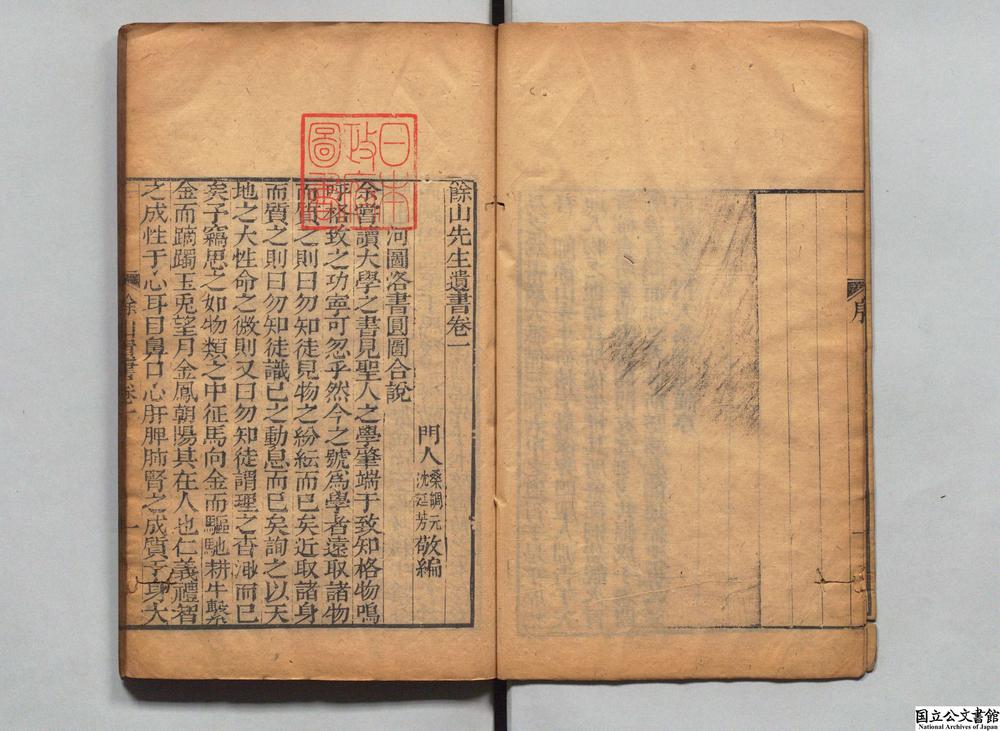 序
餘山先生遺書卷一
門人桑調元沈廷芳敬編
河圖洛書圓圖合說
余嘗讀大學之書見聖人之學肇端于致知格物鳴
呼格致之功寧可忽乎然今之號爲學者遠取諸物
而質之則曰勿知徒見物之紛紜而已矣近取諸身
而質之則曰勿知徒識己之動息而已矣詢之以天
地之大性命之微則又曰勿知徒謂理之杳渺而已
矣予竊思之如物類之中征馬向金而驅馳耕牛繫
金而蹢躅玉兎望月金鳳朝陽其在人也仁義禮智
之成性于心耳目鼻口心肝脾肺腎之成質于身大
餘山遺書卷一
一
日本政府圖書
国立公文書館
National Archives of Japan